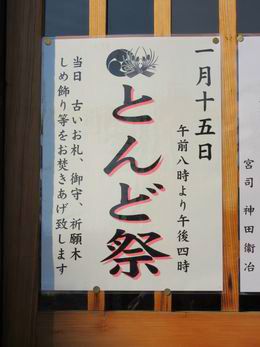 一月十五日
午前八時より午後四時
とんど祭
当日 古いお札、御守、祈願木
しめ飾り等をお焚きあげ致します
宮司 神田衞冶